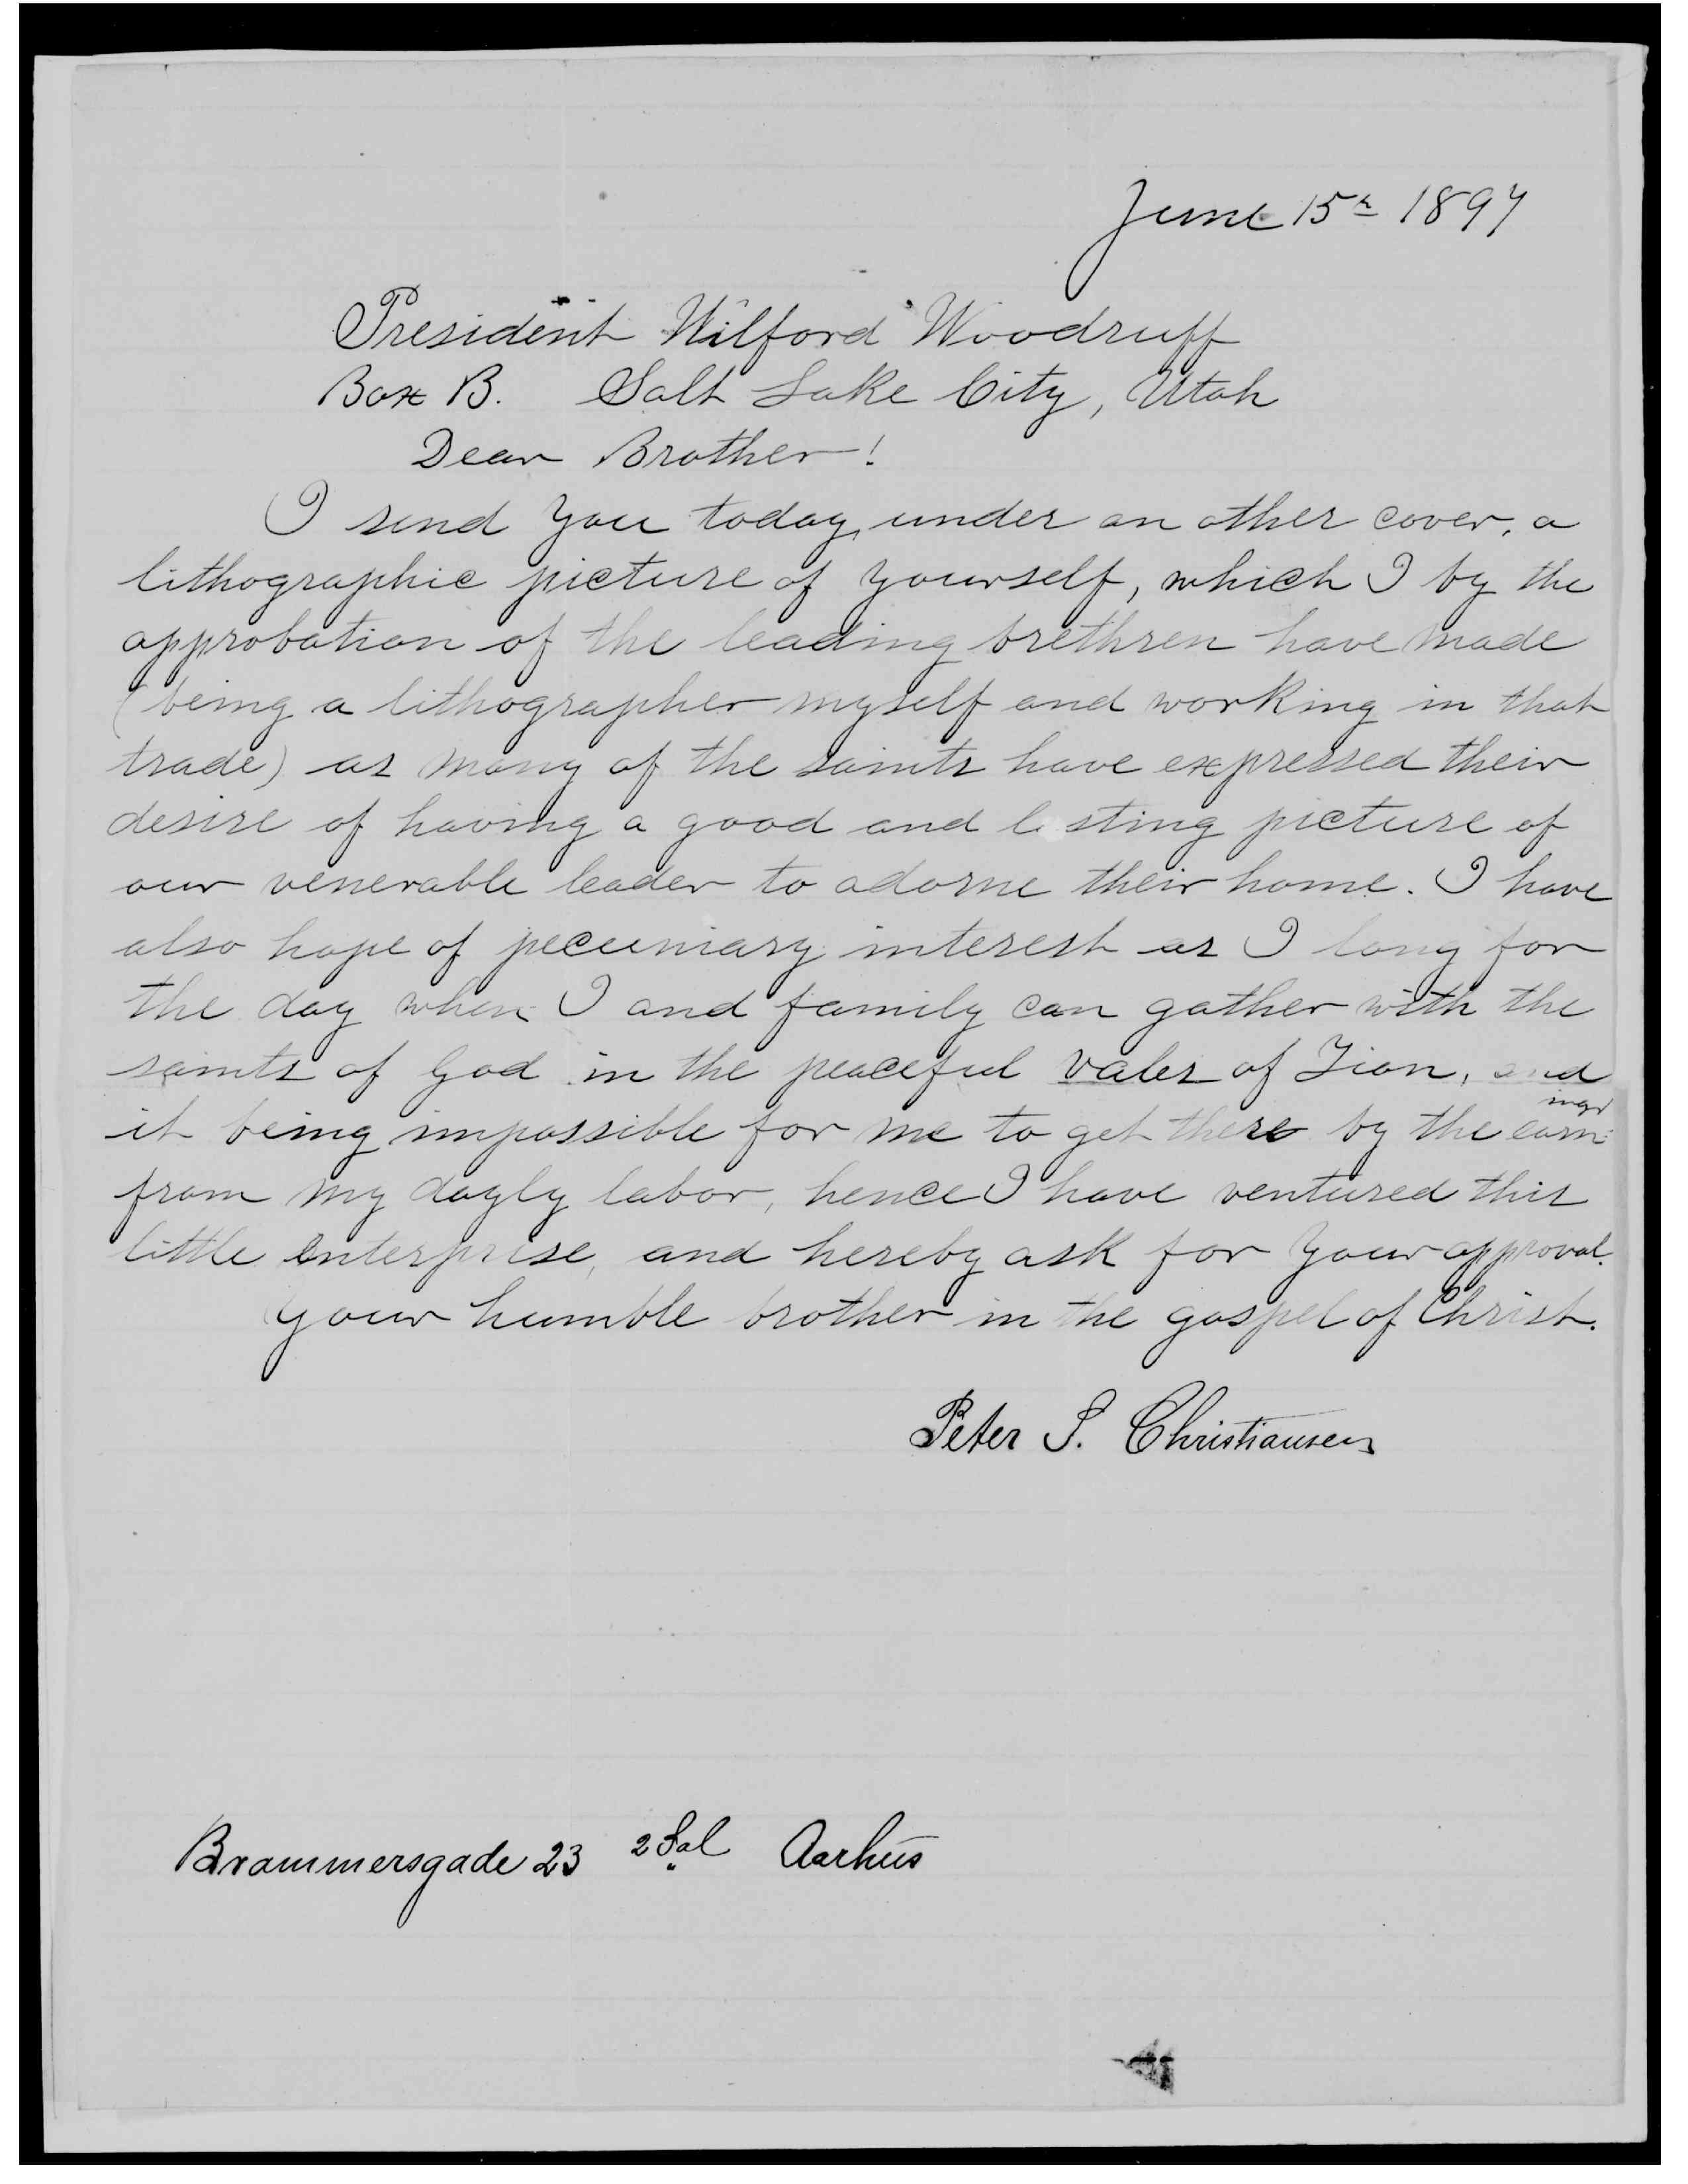 June 15th 1897
President Wilford Woodruff
Box B. Salt Lake City, Utah
Dear Brother!
I send you today, under an other cover, a
lithographic picture of yourself, which I by the
approbation of the leading brethren have made
(being a lithographer myself and working in that
trade) as many of the saints have expressed their
desire of having a good and lasting picture of
our venerable leader to adorne their home. I have
also hope of pecuniary interest as I long for
the day when I and family can gather with the
saints of God in the peaceful vales of Zion, and
it being impossible for me to get there by the earnings
from my dayly labor, hence I have ventured this
little enterprise, and hereby ask for your approval.
Your humble brother in the gospel of Christ.
Peter S. Christiansen
Brammersgade 23 2 Sal Aarhus